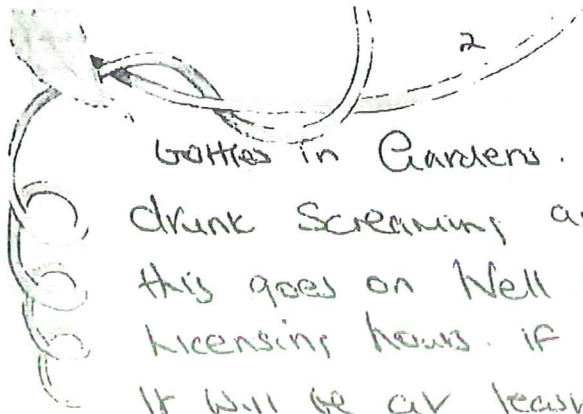 2
bottles in Gardens.
drunk Screaming
this goes on Well
Licensing hours. if
It will be at least